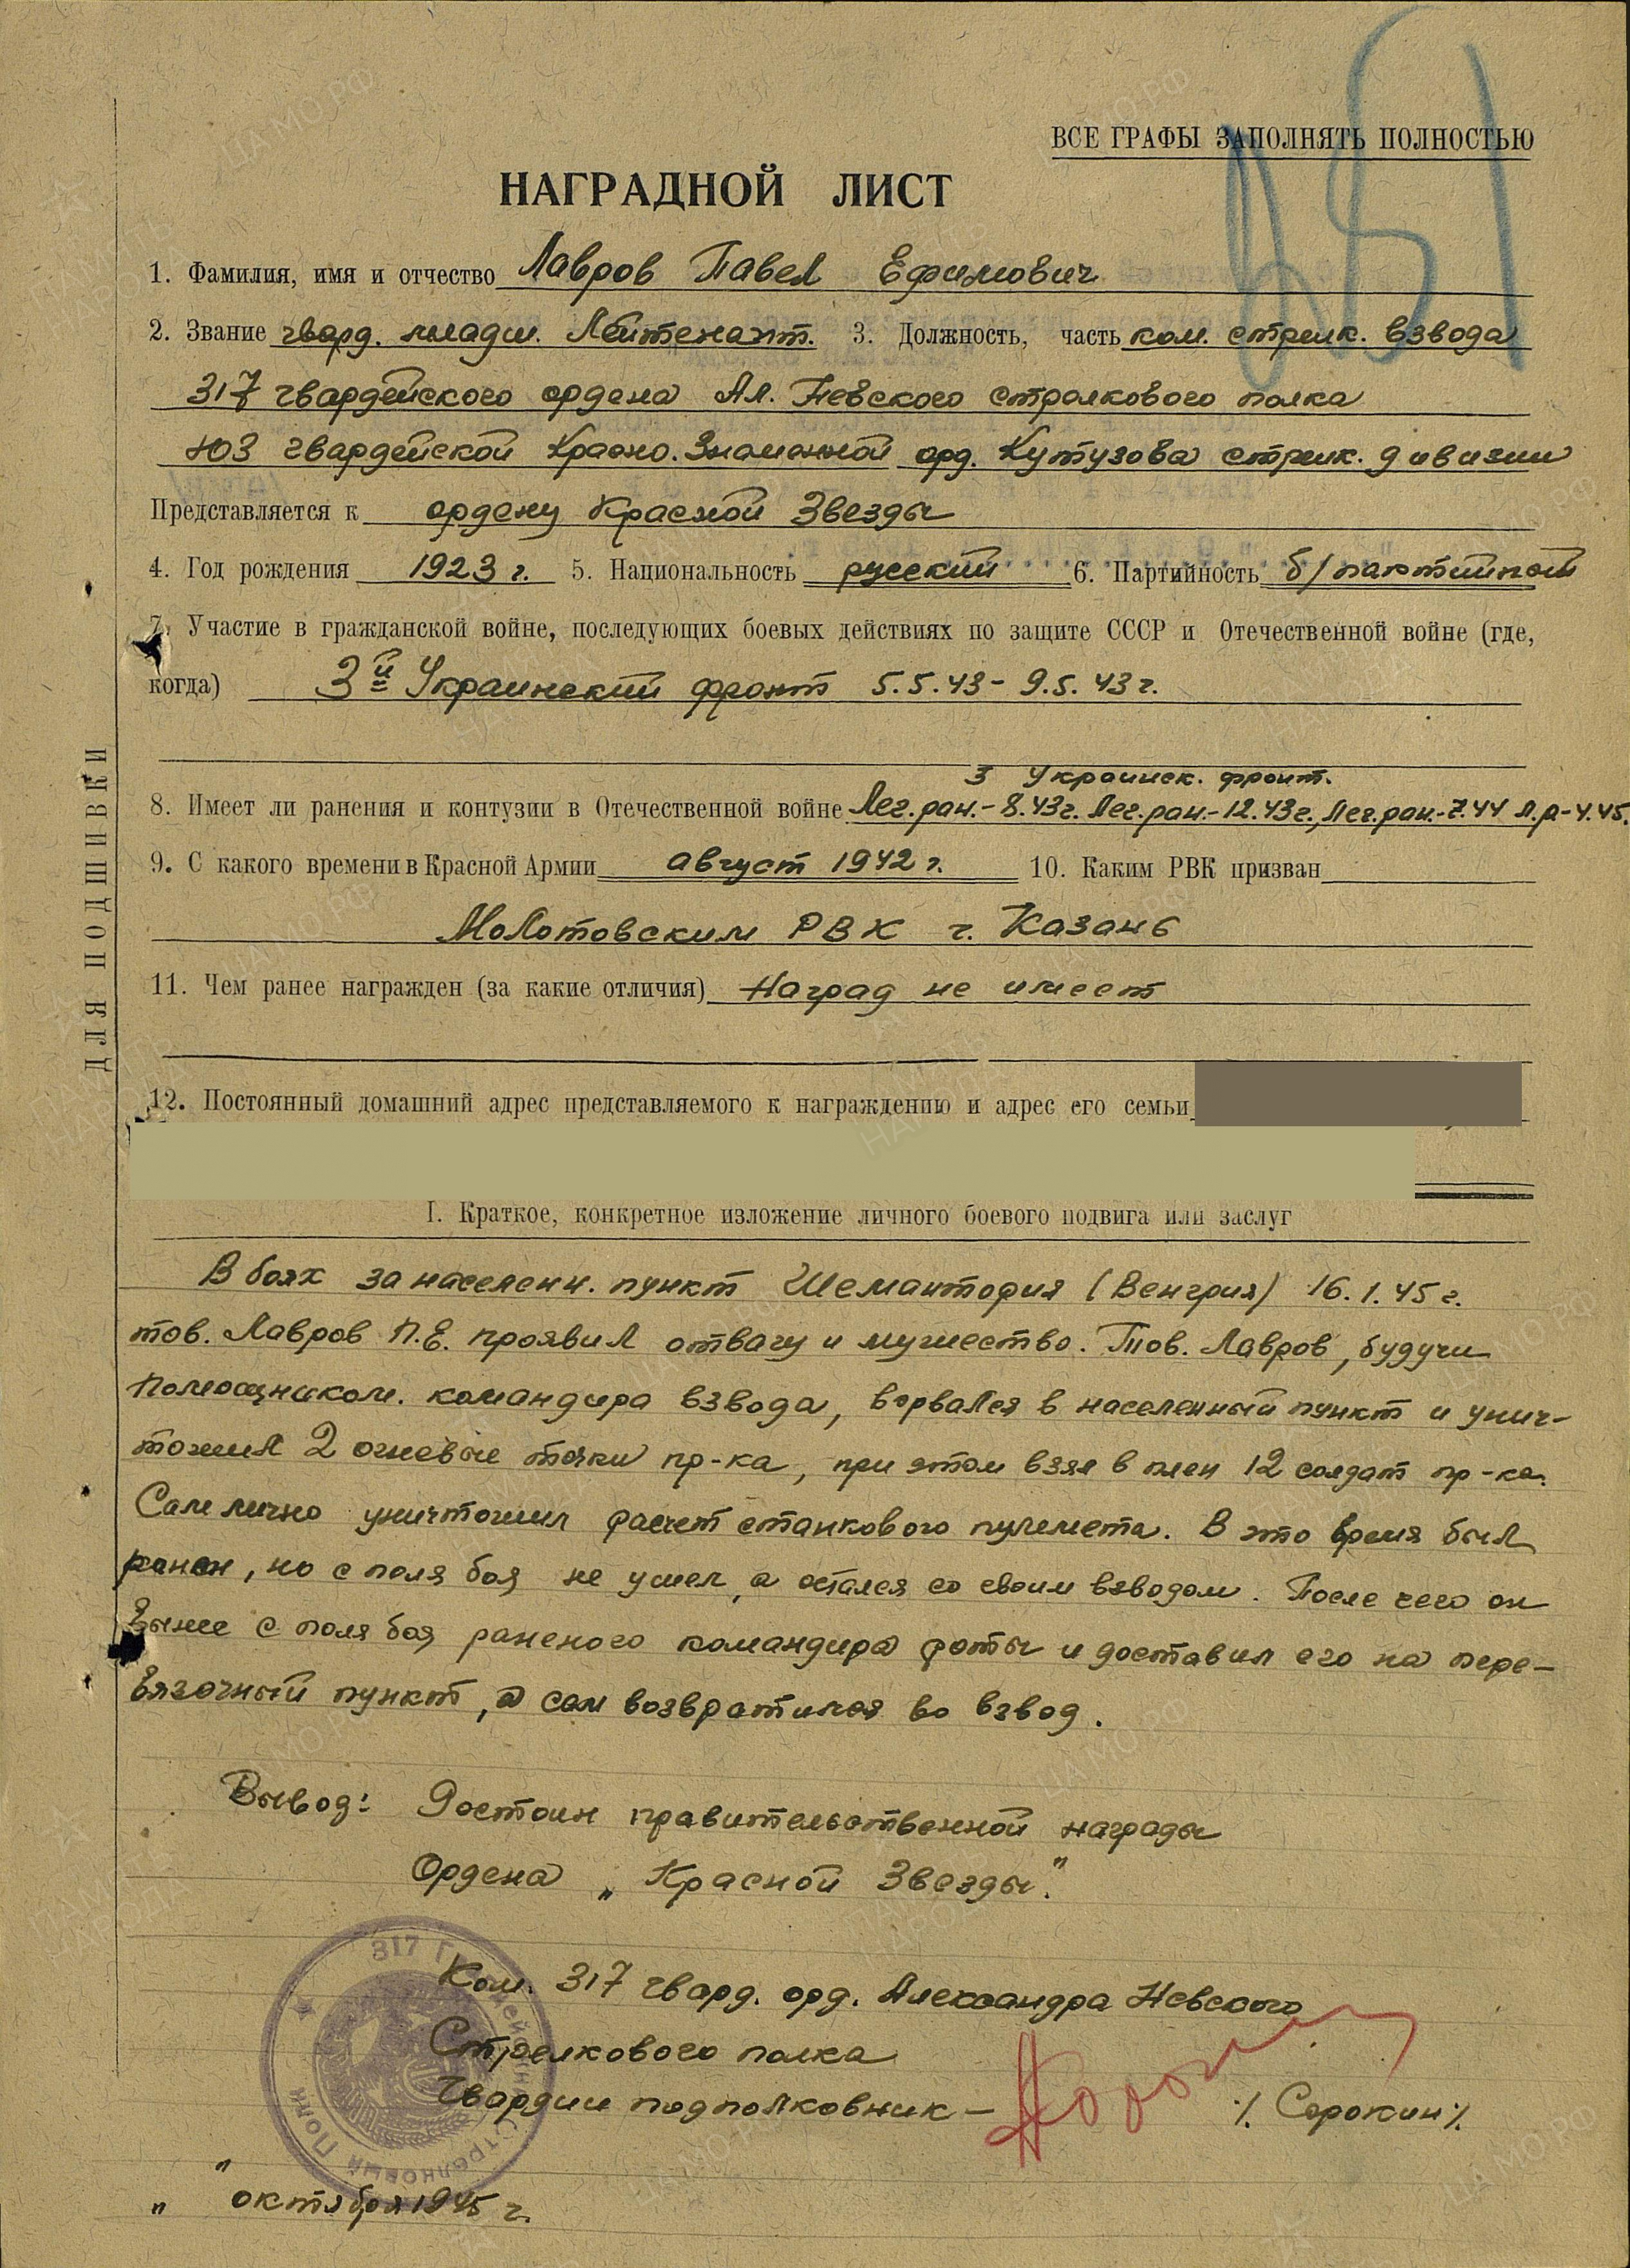 ВСЕ ГРАФЫ ЗАПОЛНЯТЬ ПОЛНОСТЬЮ
НАГРАДНОЙ ЛИСТ
1. Фамилия, имя и отчество Лавров Павел Ефимович
2. Звание гвард. младш. Лейтенант. 3. Должность, часть ком. стрелк. взвода
317 гвардейского ордена Ал. Невского стрелкового полка
103 гвардейской Красно.Знаменной орд. Кутузова стрелк. дивизии
Представляется к ордену Красной Звезды
4. Год рождения 1923 г. 5. Национальность русский 6. Партийность б/партийной
7. Участие в гражданской войне, последующих боевых действиях по защите СССР и Отечественной войне (где,
когда) 3й Украинский фронт 5.5.43 - 9.5.43 г.
3 Украинск. фронт.
8. Имеет ли ранения и контузии в Отечественной войне Лег.ран.- 8.43г. Лег.ран.- 12.43г., Лег.ран.- 7.44 Л.р - 4.45.
9. С какого времени в Красной Армии август 1942 г. 10. Каким РВК призван
Молотовским РВК г. Казань
11. Чем ранее награжден (за какие отличия) Наград не имеет
12. Постоянный домашний адрес представляемого к награждению и адрес его семьи
ДЛЯ ПОДШИВКИ
I. Краткое, конкретное изложение личного боевого подвига или заслуг
В боях за населенн. пункт (Венгрия) 16.1.45 г.
тов. Лавров П.Е. проявил отвагу и мужество. Тов. Лавров, будучи
помощником. командира взвода, ворвался в населенный пункт и унич-
тожил 2 огневые точки пр-ка, при этом взял в плен 12 солдат пр-ка.
Сам лично уничтожил расчет станкового пулемета. В это время был
ранен, но с поля боя не ушел, а остался со своим взводом. После чего он
вынес с поля боя раненого командира роты и доставил его на пере-
вязочный пункт, а сам возвратился во взвод.
Вывод: Достоин правительственной награды
Ордена „Красной Звезды."
Ком. 317 гвард. орд. Александра Невского
Стрелкового полка
Гвардии подполковник – /. Сорокин /.
" " октября 1945 г.
317 Гвардейский Стрелковый Полк
ЦА МО РФ
ПАМЯТЬ НАРОДА